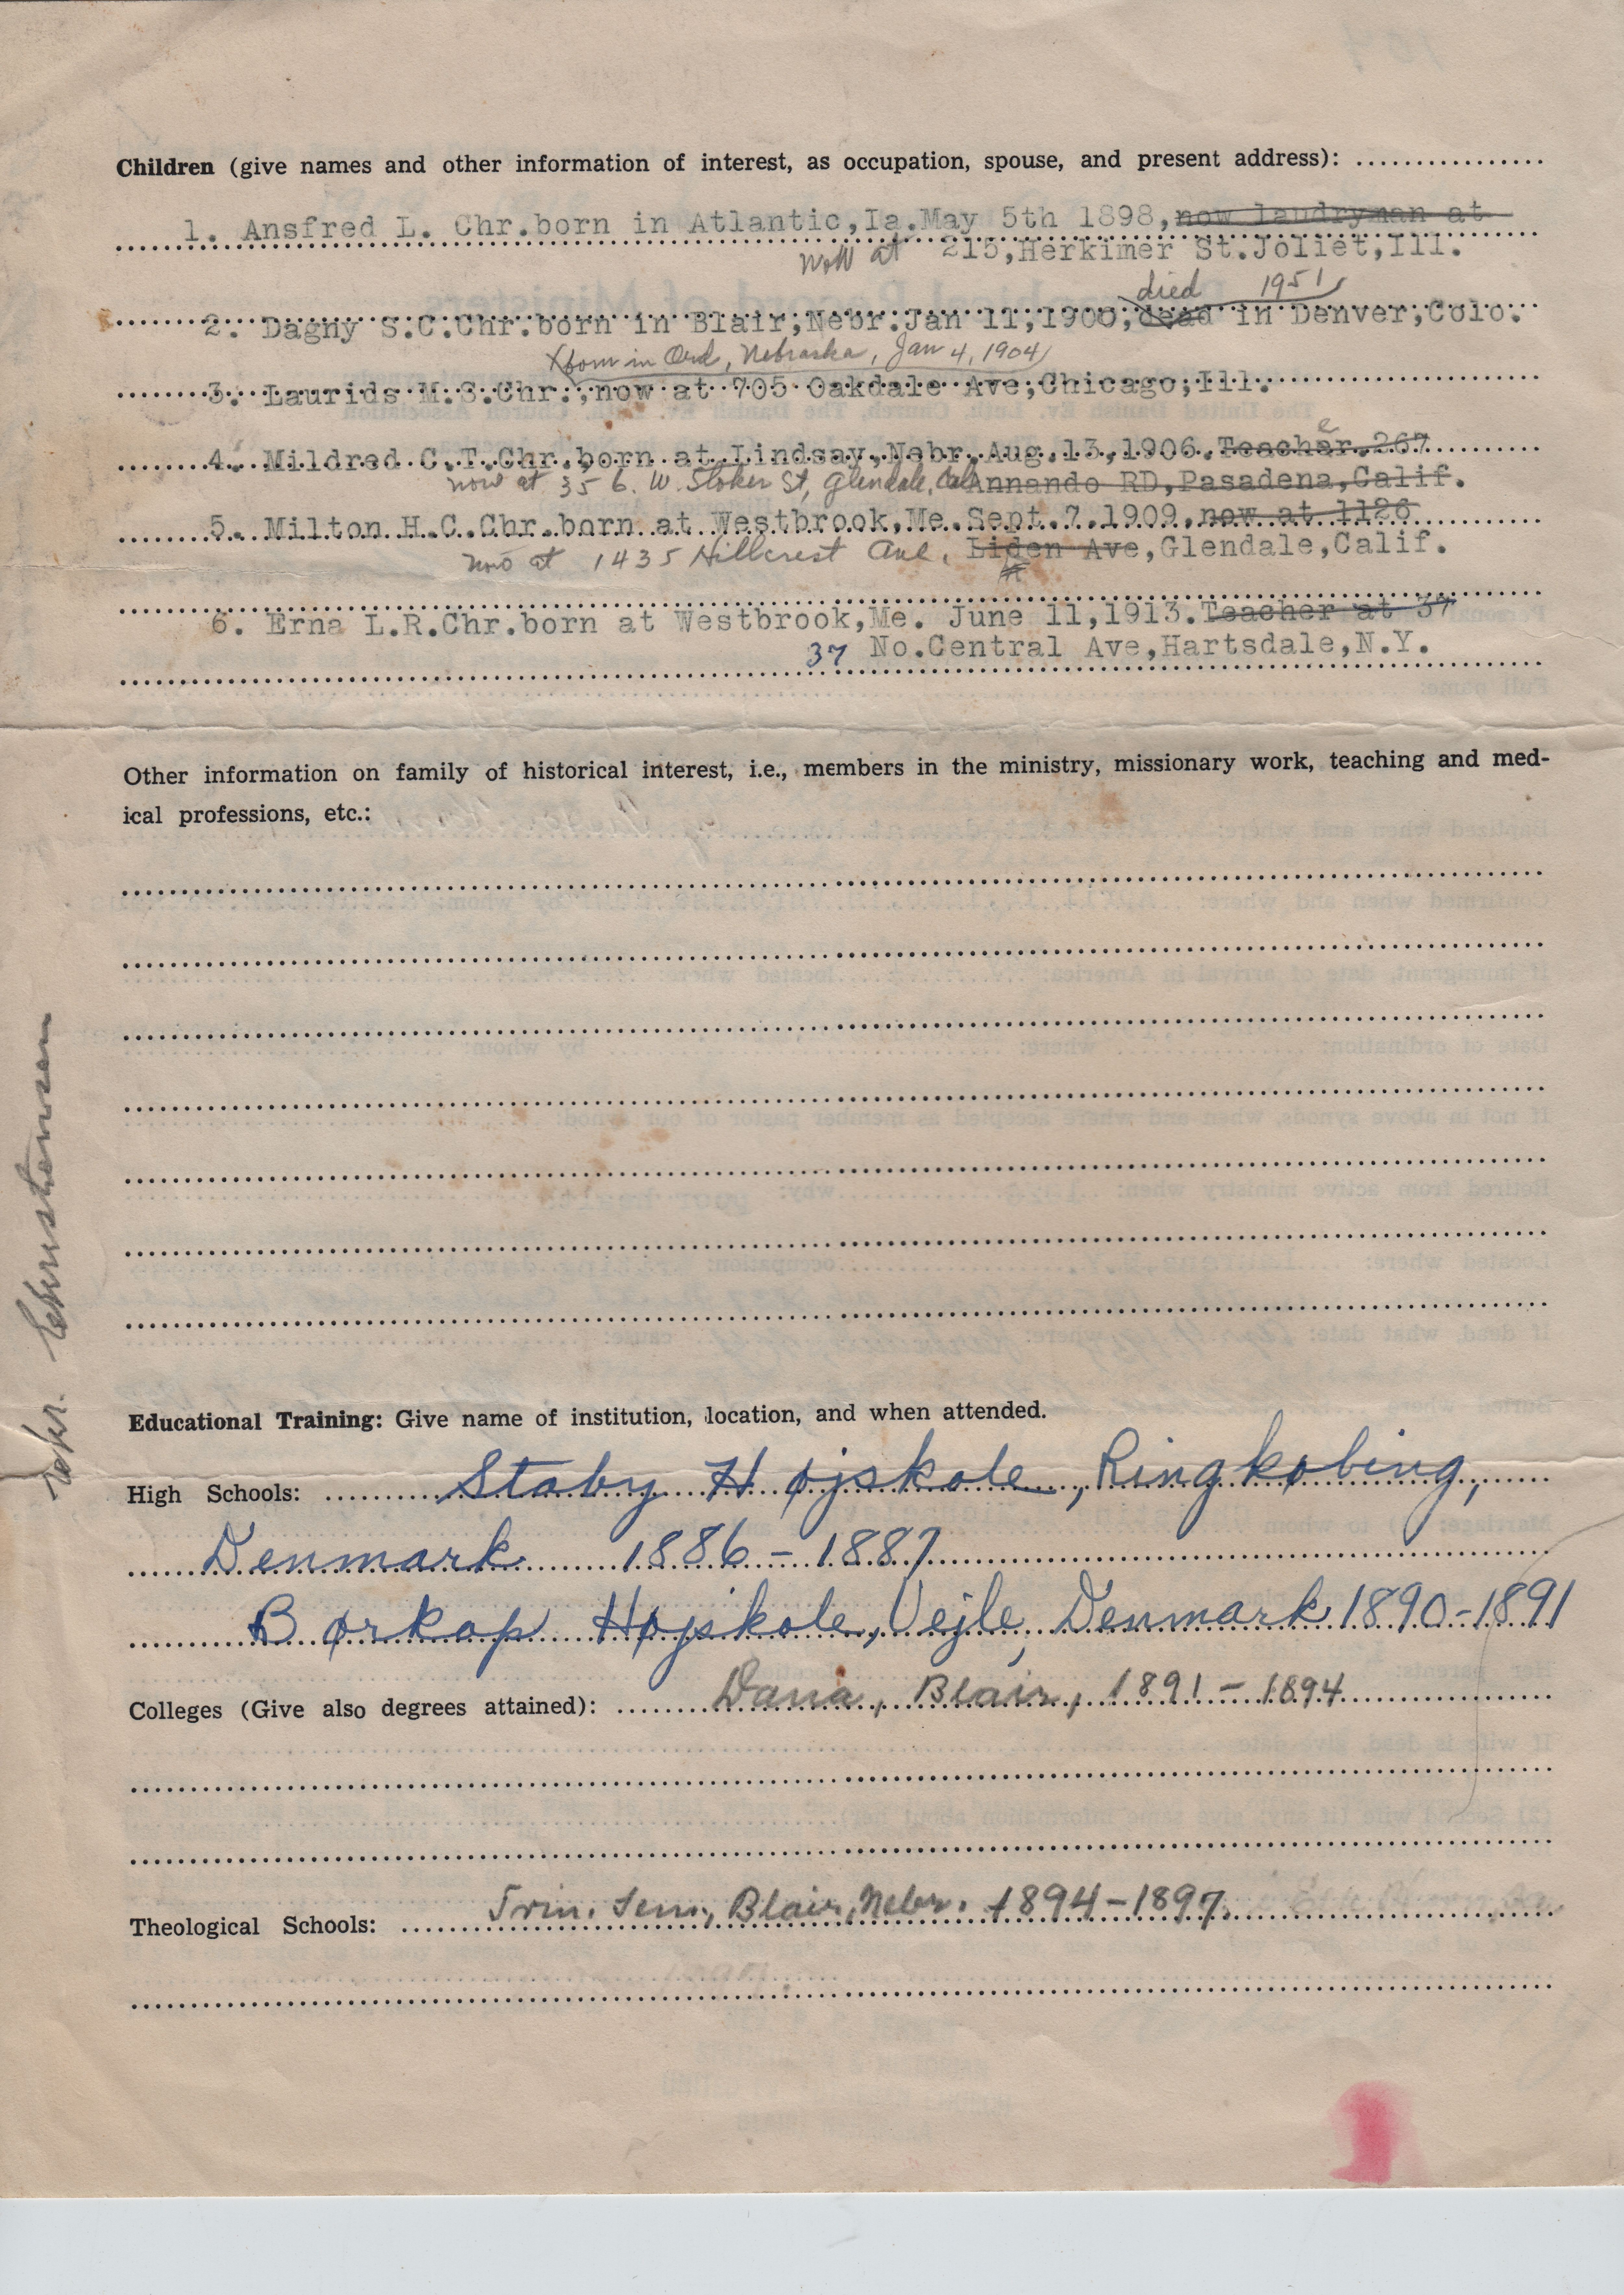 Children (give names and other information of interest, as occupation, spouse, and present address): ................
1. Ansfred L. Chr.born in Atlantic,Ia.May 5th 1898,now laudryman at
now at 215,Herkimer St.Joliet,Ill.
died 1951
2. Dagny S.C.Chr.born in Blair,Nebr.Jan 11,1900,dead in Denver,Colo.
born in Ord, Nebraska, Jan 4, 1904
3. Laurids M.S.Chr.,now at 705 Oakdale Ave,Chicago,Ill.
4. Mildred C.T.Chr.born at Lindsay,Nebr.Aug.13,1906.Teacher.267
now at 356. W. Stoker St, Glendale, Cal Annando RD,Pasadena,Calif.
5. Milton H.C.Chr.born at Westbrook,Me.Sept.7.1909,now at 1126
now at 1435 Hillcrest Ave, Liden Ave,Glendale,Calif.
6. Erna L.R.Chr.born at Westbrook,Me. June 11,1913.Teacher at 37
37 No.Central Ave,Hartsdale,N.Y.
Other information on family of historical interest, i.e., members in the ministry, missionary work, teaching and med-
ical professions, etc.:
Chr. Christensen
Educational Training: Give name of institution, location, and when attended.
High Schools: Staby Højskole, Ringkøbing,
Denmark 1886-1887
Børkop Højskole, Vejle, Denmark 1890-1891
Colleges (Give also degrees attained): Dana, Blair, 1891-1894
Theological Schools: Trin. Sem., Blair, Nebr. 1894-1897.